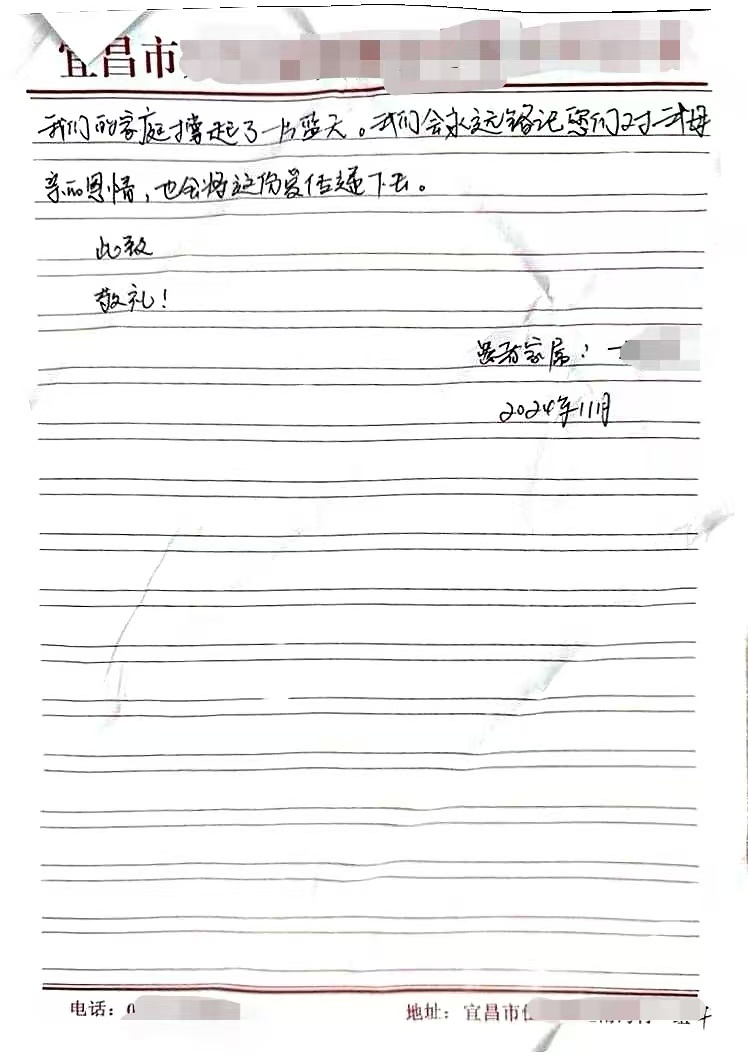 宜昌市
我们的家庭撑起了一片蓝天。我们会永远铭记您们对我母
亲的恩情，也会将这份爱传递下去。
此致
敬礼！
患者家属：
2024年11月
电话：0
地址：宜昌市